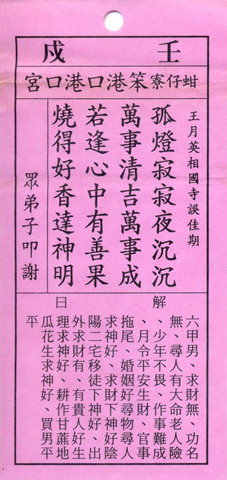 壬戍
蚶仔寮笨港口港口宮
王月英相國寺誤佳期
孤燈寂寂夜沉沉
萬事清吉萬事成
若逢心中有善果
燒得好香達神明
眾弟子叩謝
解曰
六甲男、求財無、功名
無、尋人有大命老人險
、少年不畏、作事難成
、月令平安生財、官事
拖尾、婚姻好尋物尋人
求神好、求財下神好陰
陽二宅移徒下神好、出
外求財有、有貴人好生
理求神好、耕作甘蔗地
瓜花生求神好、買男平
平